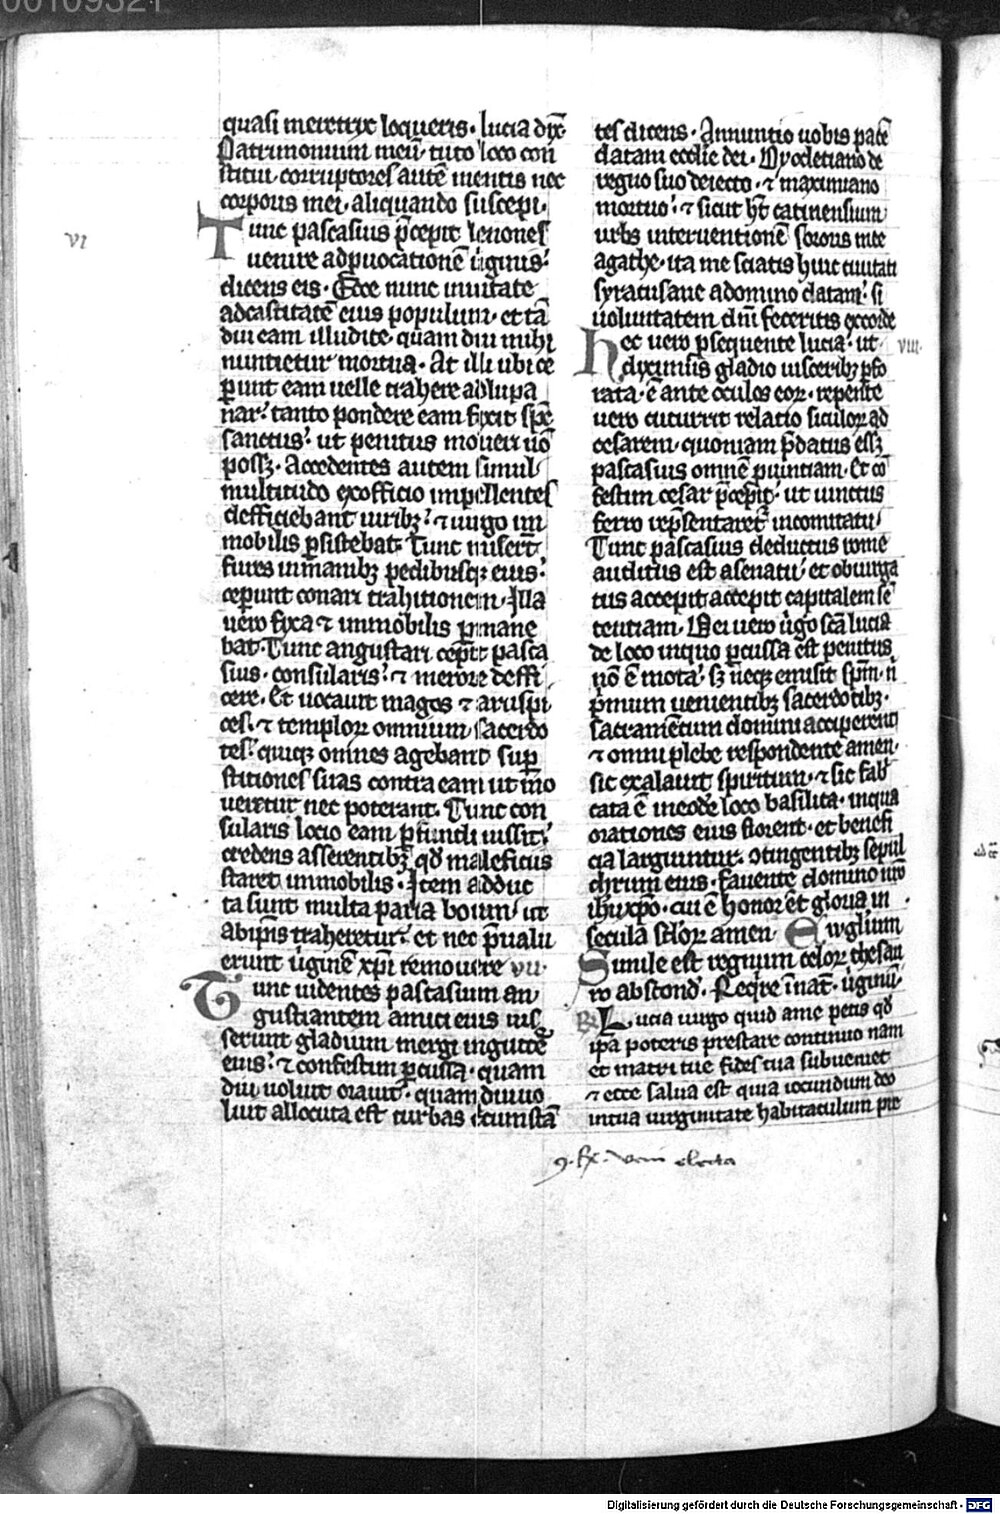 quasi meretrix loqueris. lucia dix̄
Patrimonium meū. tuto loco con
stitui. corruptores autē mentis nec
corporis mei. aliquando suscepi.
VI
Tunc pascasius p̄cepit lenones
uenire ad ꝓuocationē uͥginis.
dicens eis. Ecce nunc inuitate
ad castitatē eius populum. et tā
diu eam illudite. quam diu mihi
nuntietur mortua. At illi ubi ce
ꝑunt eam uelle trahere ad lupa
nar. tanto pondere eam fixit sp̄c
sanctus. ut penitus moueri nō
possꝫ. Accedentes autem simul
multitudo ex officio impellentes
defficiebant uiribꝫ. ⁊ uirgo im
mobilis ꝑsistebat. Tunc miserūt
funes in manibꝫ pedibusqꝫ eius.
ceperunt conari trahitionem. Illa
uero fixa ⁊ immobilis ꝑmane
bat. Tunc angustari cepit pasca
sius. consularis. ⁊ merore deffi
cere. Et uocauit magos ⁊ aruspi
ces. ⁊ temploꝝ omnium sacerdo
tes. quiqꝫ omnes agebant suꝑ
stitiones suas contra eam ut mo
ueretur nec poterant. Tunc con
sularis locio eam ꝑfundi iussit.
credens asserentibꝫ qd̄ maleficiis
staret immobilis. Item adduc
ta sunt multa paria boum. ut
ab ip̄is traheretur. et nec p̄ualu
erunt uͥginē xp̄i remouere VII.
Tunc uidentes pascasium an
gustiantem amici eius ius
serunt gladium mergi in guttͥe
eius. ⁊ confestim ꝑcussa. quam
diu uoluit orauit. quam diu uo
luit allocuta est turbas circumstā
tes dicens. Annuntio uobis pacē
datam ecclie dei. Dyocletiano de
regno suo deiecto. ⁊ maximiano
mortuo. ⁊ sicut h̄t catinensium
urbs interuentionē sororis mee
agathe. ita me sciatis huic ciuitati
syracusane a domino datam. si
uoluntatem dn̄i feceritis ex corde
VIII.
hec uero ꝓsequente lucia. ut
diximus gladio uisceribꝫ ꝑfo
rata. ē ante oculos eoꝝ. repente
uero cucurrit relatio siculoꝝ ad
cesarem. quoniam p̄datus essꝫ
pascasius omnē ꝓuintiam. Et cō
festim cesar p̄cepit. ut uinctus
ferro rep̄sentaretᷣ in comitatu.
Tunc pascasius deductus rome
auditus est a senatu. et obiurga
tus accepit accepit capitalem sē
tentiam. Mei uero uͥgo sc̄a lucia
de loco in quo ꝑcussa est penitus
nō ē mota. sꝫ neqꝫ emisit sp̄m. ni
p̄mum uenientibꝫ sacerdotibꝫ.
sacramētum domini acciperent
⁊ omni plebe respondente amen.
sic exalauit spiritum. ⁊ sic fabͥ
cata ē in eodē loco basilica. in qua
orationes eius florent. et benefi
cia larguntur. ꝯtingentibꝫ sepul
chrum eius. fauente domino nr̄o
ihu xp̄o. cui ē honor et gloria in
secula sc̄loꝝ amen. Ewglium
Simile est regnum celoꝝ thesau
ro abscond̄. Reqͥre in nat̄. uͥginū.
℞ Lucia uirgo quid a me petis qd̄
ip̄a poteris prestare continuo nam
et matri tue fides tua subueniet
⁊ ecce salua est quia iocundum deo
in tua uirginitate habitaculum pre